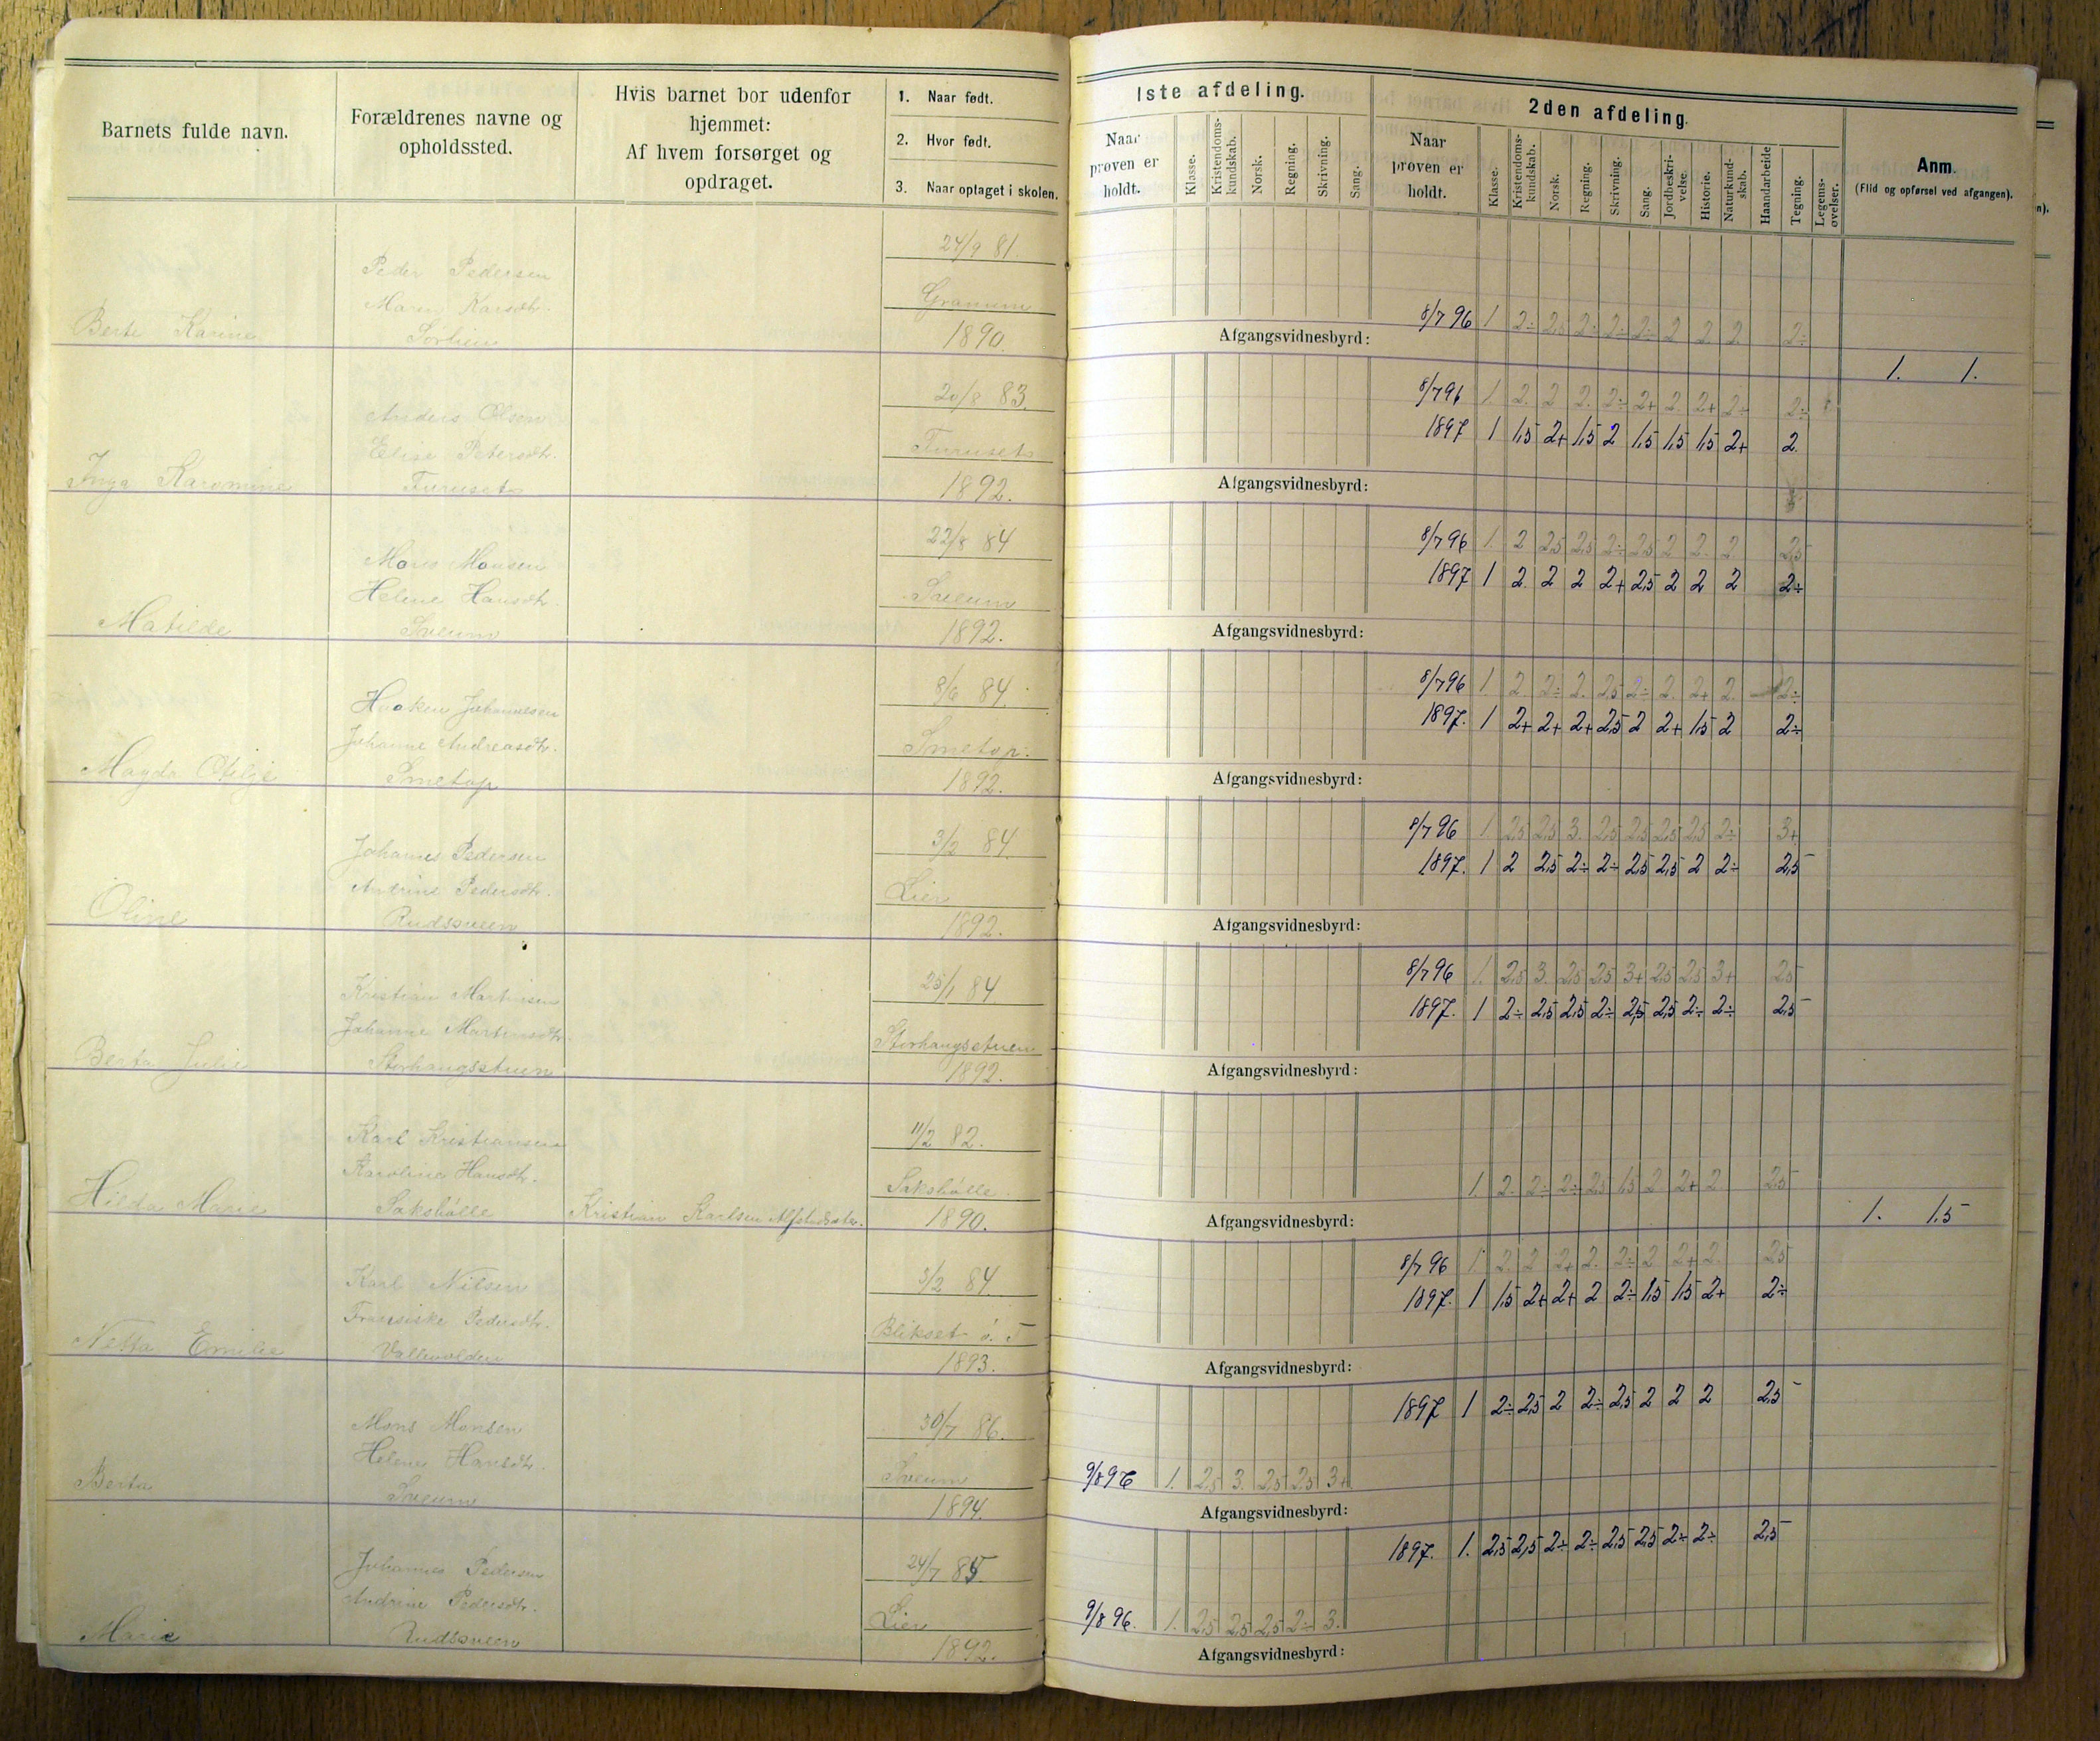 Barnets fulde navn.
Forældrenes navne og opholdssted.
Hvis barnet bor udenfor hjemmet: Af hvem forsørget og opdraget.
1. Naar født.
2. Hvor født.
3. Naar optaget i skolen.
1ste afdeling.
Naar prøven er holdt.
Klasse.
Kristendoms-kundskab.
Norsk.
Regning.
Skrivning.
Sang.
2den afdeling.
Naar prøven er holdt.
Klasse.
Kristendoms-kundskab.
Norsk.
Regning.
Skrivning.
Sang.
Jordbeskri-velse.
Historie.
Naturkund-skab.
Haandarbeide
Tegning.
Legems-øvelser.
Anm.
(Flid og opførsel ved afgangen).
24/9 81.
Peder Pedersen
Maren Larsdtr.
Berte Karine
1890.
8/7 96 1 2÷ 2,5 2÷ 2÷ 2÷ 2 2. 2. 2÷
Afgangsvidnesbyrd:
1. 1.
20/8 83.
Anders Olsen
Elise Petersdtr.
Furuset
Inga Karomine
Furuset
1892.
8/7 96 1. 2. 2 2. 2÷ 2+ 2. 2+ 2÷ 2÷
1897 1 1,5 2+ 1,5 2 1,5 1,5 1,5 2+ 2.
Afgangsvidnesbyrd:
22/8 84
Mons Monsen
Helene Hansdtr.
Sveum
Matilde
Sveum
1892.
8/7 96 1. 2 2,5 2,5 2÷ 2,5 2 2. 2 2,5
1897 1 2. 2 2 2+ 2,5 2 2 2 2÷
Afgangsvidnesbyrd:
8/6 84.
Haaken Johannesen
Johanne Andreasdtr.
Smetop.
Magda Otilje
Smetop
1892.
8/7 96 1. 2 2÷ 2. 2,5 2÷ 2. 2+ 2. 2÷
1897. 1 2+ 2+ 2+ 2,5 2 2+ 1,5 2 2÷
Afgangsvidnesbyrd:
3/2 84.
Johannes Pedersen
Andrine Pedersdtr.
Lier
Oline
Rudssveen
1892.
8/7 96 1. 2,5 2,5 3. 2,5 2,5 2,5 2,5 2÷ 3+
1897. 1 2 2,5 2÷ 2÷ 2,5 2,5 2 2÷ 2,5
Afgangsvidnesbyrd:
25/1 84
Kristian Martinsen
Johanne Martinsdtr.
Storhaugsstuen
Berta Julie
Storhaugsstuen
1892.
8/7 96 1. 2,5 3. 2,5 2,5 3+ 2,5 2,5 3+ 2,5
1897. 1 2÷ 2,5 2,5 2÷ 2,5 2,5 2÷ 2÷ 2,5
Afgangsvidnesbyrd:
11/2 82.
Karl Kristiansen
Karoline Hansdtr.
Sakshølle
Hilda Marie
Sakshølle
Kristian Karlsen
1890.
1. 2. 2÷ 2÷ 2,5 1,5 2 2+ 2 2,5
Afgangsvidnesbyrd:
1. 1,5
3/2 84
Karl Nilsen
Fransiske Pedersdtr.
Blikset
Netta Emilie
1893.
8/7 96 1 2. 2 2+ 2. 2÷ 2 2+ 2. 2,5
1897. 1 1,5 2+ 2+ 2 2÷ 1,5 1,5 2+ 2÷
Afgangsvidnesbyrd:
30/7 86.
Mons Monsen
Helene Hansdtr.
Sveum
Berta
Sveum
1894.
1897 1 2÷ 2,5 2 2÷ 2,5 2 2 2 2,5
9/8 96 1. 2,5 3. 2,5 2,5 3+
Afgangsvidnesbyrd:
24/7 85.
Johannes Pedersen
Andrine Pedersdtr.
Lier
Marie
Rudssveen
1892.
1897. 1. 2,5 2,5 2÷ 2÷ 2,5 2,5 2÷ 2÷ 2,5
9/8 96. 1. 2,5 2,5 2,5 2÷ 3.
Afgangsvidnesbyrd: